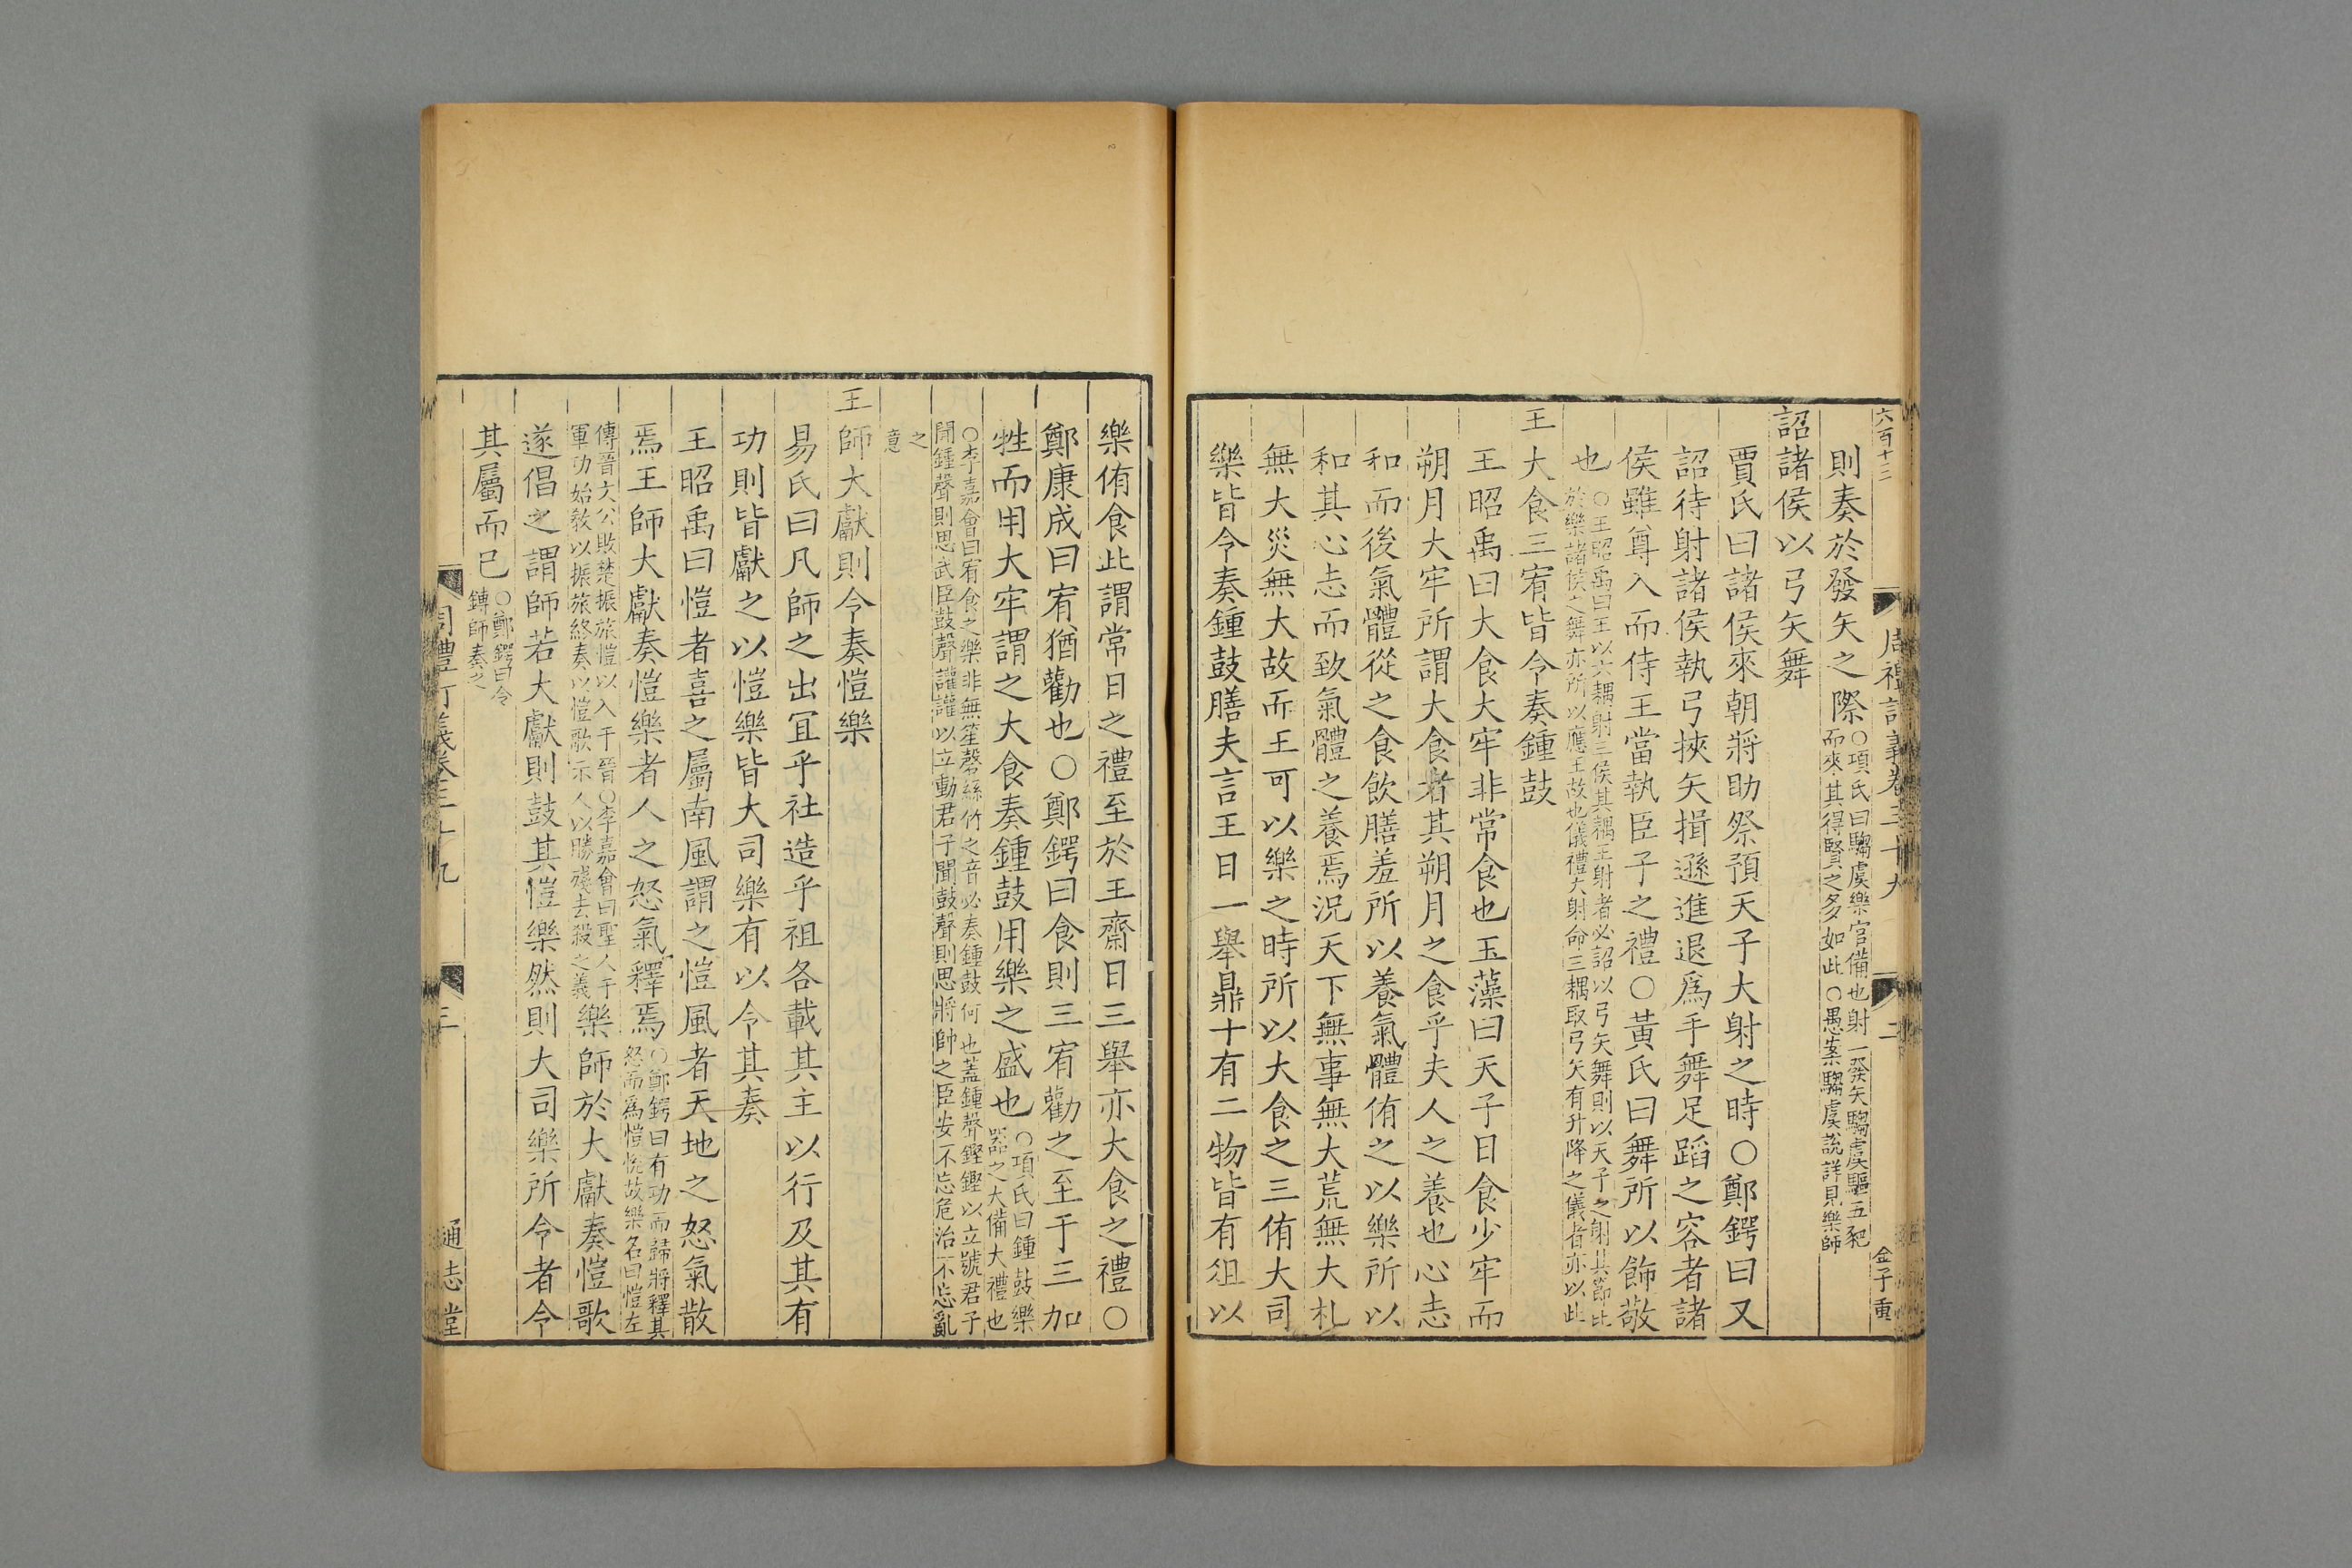 六百十二
周禮訂義卷三十九
二
金子重
則奏於發矢之際○項氏曰騶虞樂官備也射一發矢騶虞驅五豝
而來其得賢之多如此○愚案騶虞說詳見樂師
詔諸侯以弓矢舞
賈氏曰諸侯來朝將助祭預天子大射之時○鄭鍔曰又
詔待射諸侯執弓挾矢揖遜進退爲手舞足蹈之容者諸
侯雖尊入而侍王當執臣子之禮○黃氏曰舞所以飾敬
也○王昭禹曰王以六耦射三侯其耦王射者必詔以弓矢舞則以天子之射其節比
於樂諸侯之舞亦所以應王故也儀禮大射命三耦取弓矢有升降之儀者亦以此
王大食三宥皆令奏鍾鼓
王昭禹曰大食大牢非常食也玉藻曰天子日食少牢而
朔月大牢所謂大食者其朔月之食乎夫人之養也心志
和而後氣體從之食飲膳羞所以養氣體侑之以樂所以
和其心志而致氣體之養焉況天下無事無大荒無大札
無大災無大故而王可以樂之時所以大食之三侑大司
樂皆令奏鍾鼓膳夫言王日一舉鼎十有二物皆有俎以
樂侑食此謂常日之禮至於王齋日三舉亦大食之禮○
鄭康成曰宥猶勸也○鄭鍔曰食則三宥勸之至于三加
牲而用大牢謂之大食奏鍾鼓用樂之盛也○項氏曰鍾鼓樂
器之大備大禮也
○李嘉會曰宥食之樂非無笙磬絲竹之音必奏鍾鼓何也蓋鍾聲鏗鏗以立號君子
聞鍾聲則思武臣鼓聲讙讙以立動君子聞鼓聲則思將帥之臣安不忘危治不忘亂
之
意
王師大獻則令奏愷樂
易氏曰凡師之出宜乎社造乎祖各載其主以行及其有
功則皆獻之以愷樂皆大司樂有以令其奏
王昭禹曰愷者喜之屬南風謂之愷風者天地之怒氣散
焉王師大獻奏愷樂者人之怒氣釋焉○鄭鍔曰有功而歸將釋其
怒而爲愷悅故樂名曰愷左
傳晉文公敗楚振旅愷以入于晉○李嘉會曰聖人于
軍功始敎以振旅終奏以愷歌示人以勝殘去殺之義樂師於大獻奏愷歌
遂倡之謂師若大獻則鼓其愷樂然則大司樂所令者令
其屬而已○鄭鍔曰令
鎛師奏之
周禮訂義卷三十九
三
通志堂